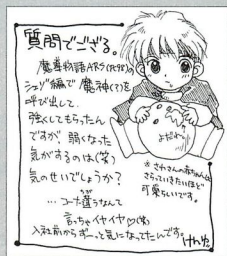 質問でござる。
魔導物語ARS(PC98)の
シェゾ編で魔神(?)を
呼び出して、
強くしてもらったん
ですが、弱くなった
気がするのは(笑)
気のせいでしょうか?
…コーナ違うなんて
言っちゃイヤイヤ♡(笑)
入社前からずーっと気になってたんです。
けんた
よだれ
※さわさんの赤ちゃんは
さらっていきたいほど
可愛らしいです。